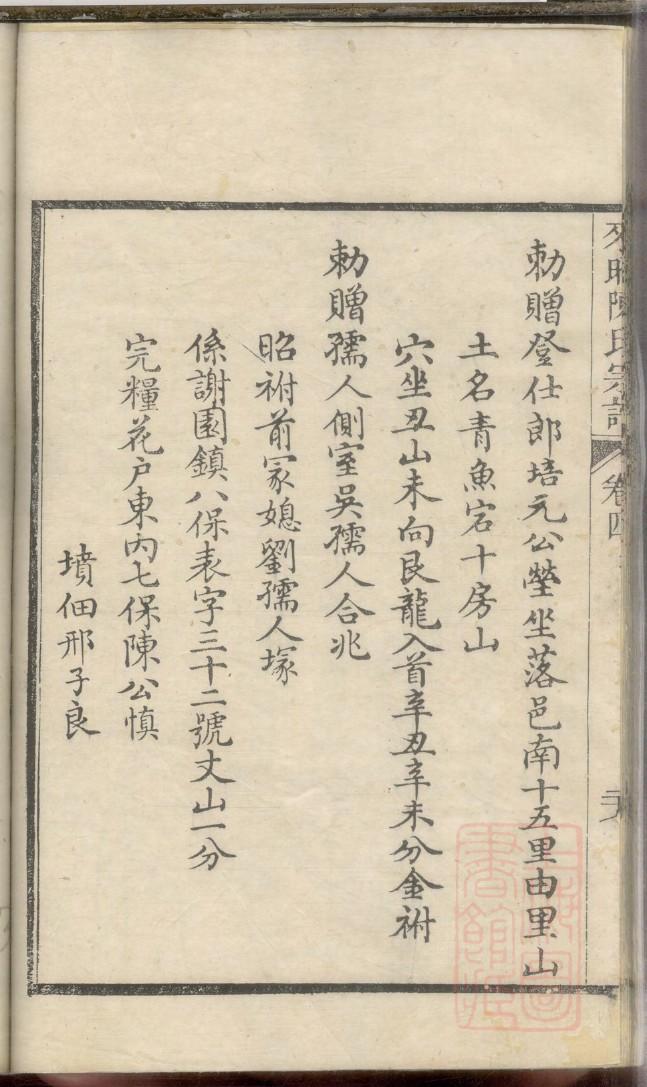 陳氏宗譜 卷四
勅贈登仕郎培元公塋坐落邑南十五里由里山
土名青魚宕十房山
穴坐丑山未向艮龍入首辛丑辛未分金祔
勅贈孺人側室吳孺人合兆
昭祔前冢媳劉孺人塚
係謝園鎮八保表字三十二號丈山一分
完糧花户東内七保陳公慎
墳佃邢子良